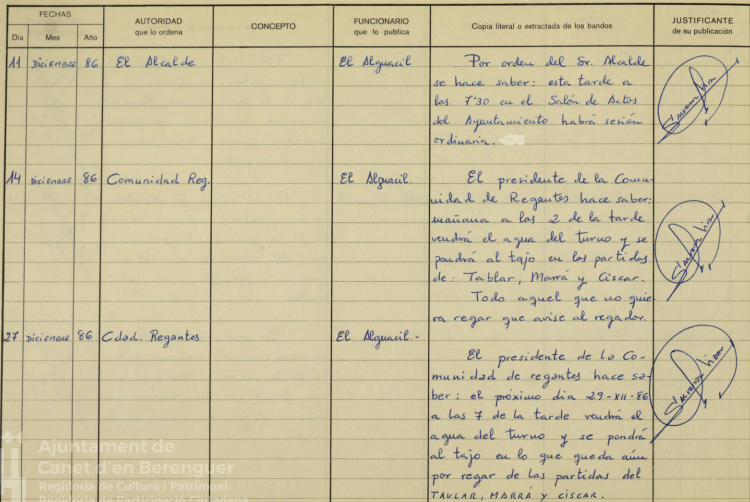 FECHAS
AUTORIDAD
que lo ordena
CONCEPTO
FUNCIONARIO
que lo publica
Copia literal o extractada de los bandos
JUSTIFICANTE
de su publicación
Día Mes Año
11 Diciembre 86 El Alcalde El Alguacil Por orden del Sr. Alcalde
se hace saber: esta tarde a
las 7'30 en el Salón de Actos
del Ayuntamiento habrá sesión
ordinaria.
14 Diciembre 86 Comunidad Reg. El Alguacil. El presidente de la Comu-
nidad de Regantes hace saber:
mañana a las 2 de la tarde
vendrá el agua del turno y se
pondrá al tajo en las partidas
de: Tablar, Marrá y Ciscar.
Todo aquel que no quie-
ra regar que avise al regador.
27 Diciembre 86 Cdad. Regantes El Alguacil.-
El presidente de la Co-
munidad de regantes hace sa-
ber: el próximo dia 29-XII-86
a las 7 de la tarde vendrá el
agua del turno y se pondrá
al tajo en lo que queda aún
por regar de las partidas del
TAULAR, MARRÁ y CISCAR.
Ajuntament de
Canet d'en Berenguer
Regidoria de Cultura i Patrimoni
Regidoria de Participació Ciutadana